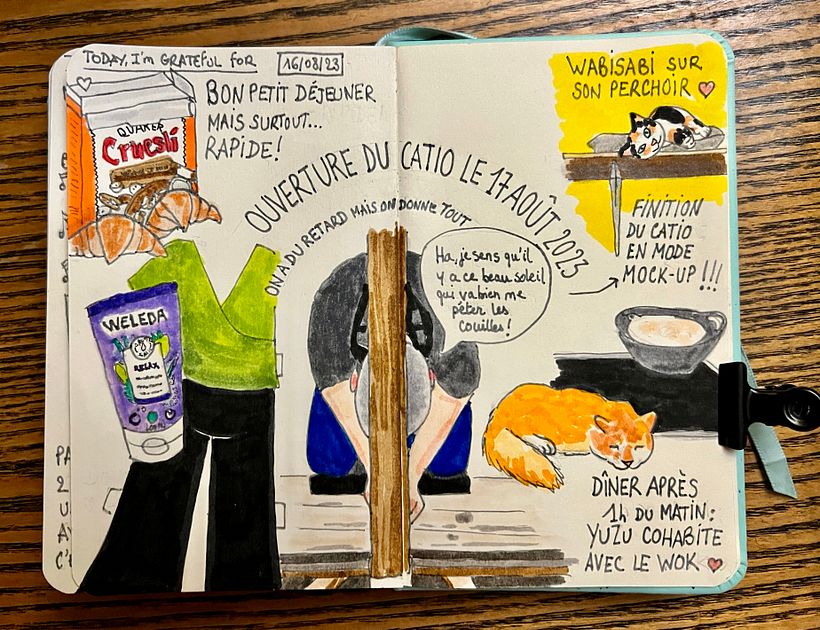 TODAY, I'm GRATEFUL FOR
16/08/23
BON PETIT DÉJEUNER
MAIS SURTOUT...
RAPIDE!
QUAKER
Cruesli
OUVERTURE DU CATIO LE 17 AOÛT 2023
ON A DU RETARD MAIS ON DONNE TOUT
WELEDA
RELAX
Ha, je sens qu'il
y a ce beau soleil
qui va bien me
péter les
couilles!
WABISABI SUR
SON PERCHOIR
FINITION
DU CATIO
EN MODE
MOCK-UP!!!
DÎNER APRÈS
1h DU MATIN:
YUZU COHABITE
AVEC LE WOK
PA
2
U
A
C'